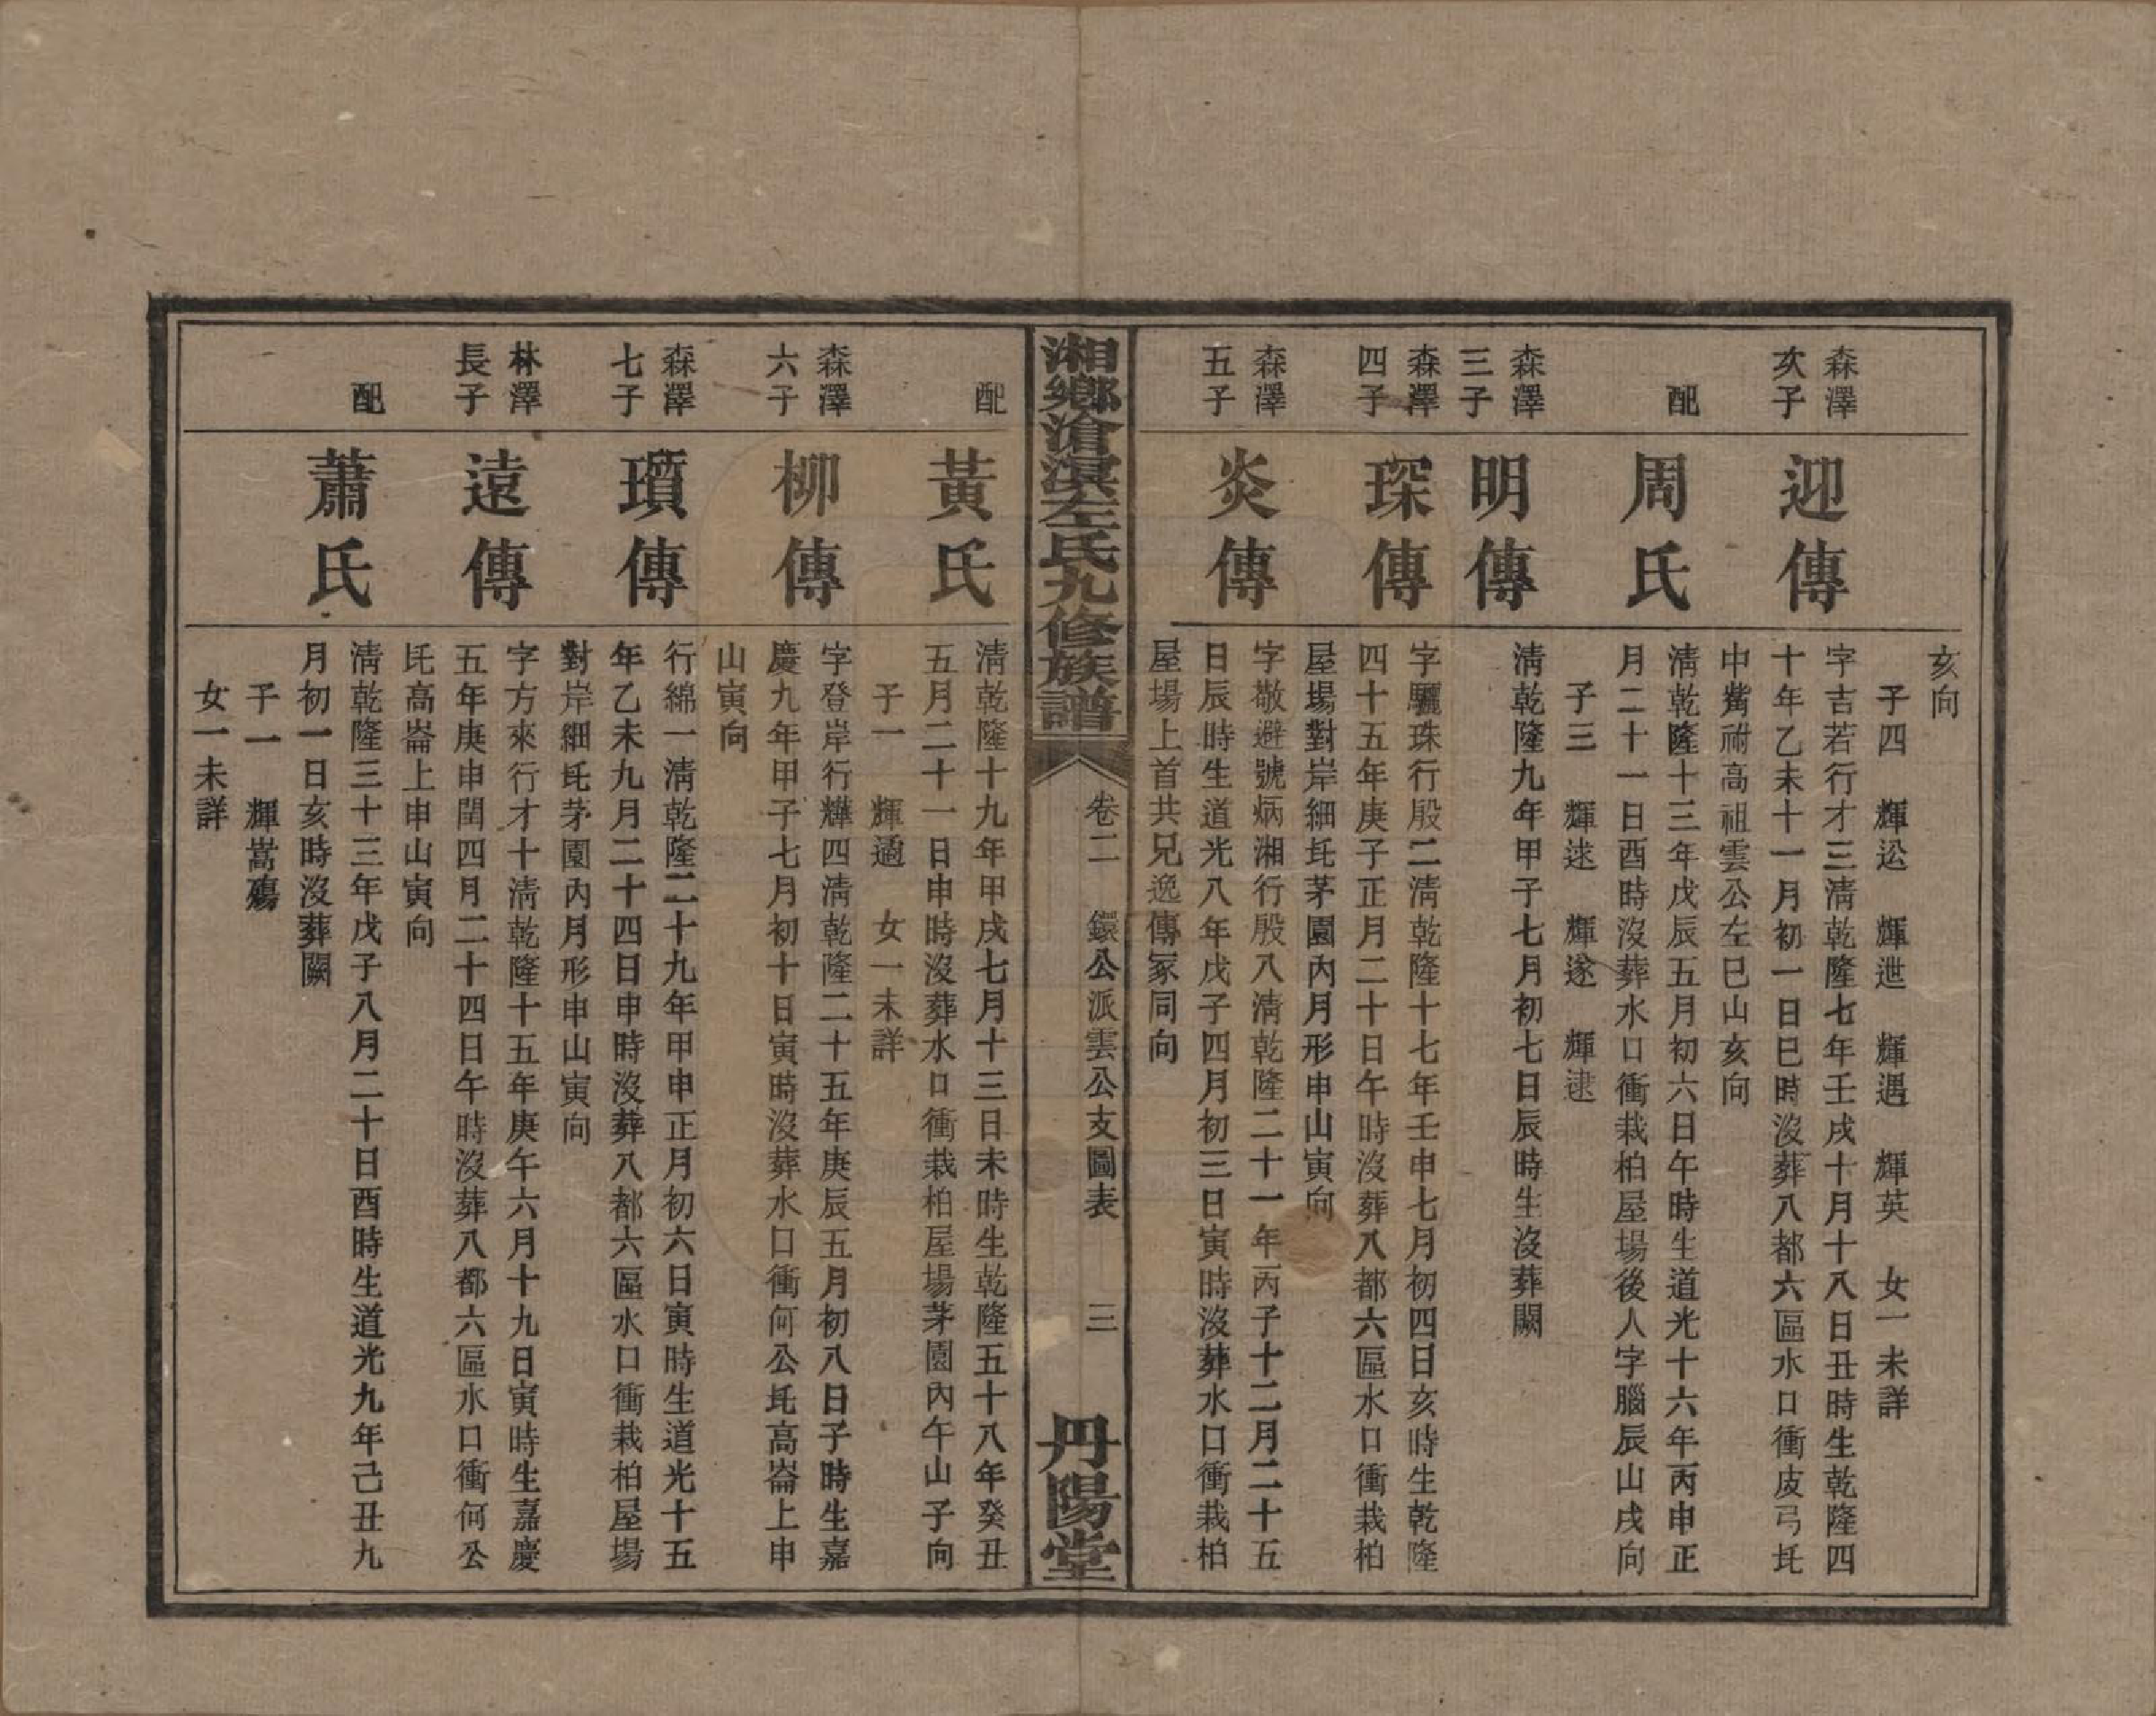 亥向
子四　輝訟　輝迣　輝遇　輝英　女一未詳
森澤
次子
迎傳
字吉若行才三清乾隆七年壬戌十月十八日丑時生乾隆四
十年乙未十一月初一日巳時沒葬八都六區水口衝皮弓圫
中嘴祔高祖雲公左巳山亥向
配
周氏
清乾隆十三年戊辰五月初六日午時生道光十六年丙申正
月二十一日酉時沒葬水口衝栽柏屋場後人字腦辰山戌向
子三　輝逑　輝遂　輝逮
森澤
三子
明傳
清乾隆九年甲子七月初七日辰時生沒葬闕
森澤
四子
琛傳
字驪珠行殷二清乾隆十七年壬申七月初四日亥時生乾隆
四十五年庚子正月二十日午時沒葬八都六區水口衝栽柏
屋場對岸細圫茅園內月形申山寅向
森澤
五子
炎傳
字敬避號炳湘行殷八清乾隆二十一年丙子十二月二十五
日辰時生道光八年戊子四月初三日寅時沒葬水口衝栽柏
屋場上首共兄逸傳冢同向
湘鄉滄溟左氏九修族譜
卷二　鐶公派雲公支圖表　三
丹陽堂
配
黃氏
清乾隆十九年甲戌七月十三日未時生乾隆五十八年癸丑
五月二十一日申時沒葬水口衝栽柏屋場茅園內午山子向
子一　輝適　女一未詳
森澤
六子
柳傳
字登岸行燁四清乾隆二十五年庚辰五月初八日子時生嘉
慶九年甲子七月初十日寅時沒葬水口衝何公圫高崙上申
山寅向
森澤
七子
璜傳
行綿一清乾隆二十九年甲申正月初六日寅時生道光十五
年乙未九月二十四日申時沒葬八都六區水口衝栽柏屋場
對岸細圫茅園內月形申山寅向
林澤
長子
遠傳
字方來行才十清乾隆十五年庚午六月十九日寅時生嘉慶
五年庚申閏四月二十四日午時沒葬八都六區水口衝何公
圫高崙上申山寅向
配
蕭氏
清乾隆三十三年戊子八月二十日酉時生道光九年己丑九
月初一日亥時沒葬闕
子一　輝嵩殤
女一未詳